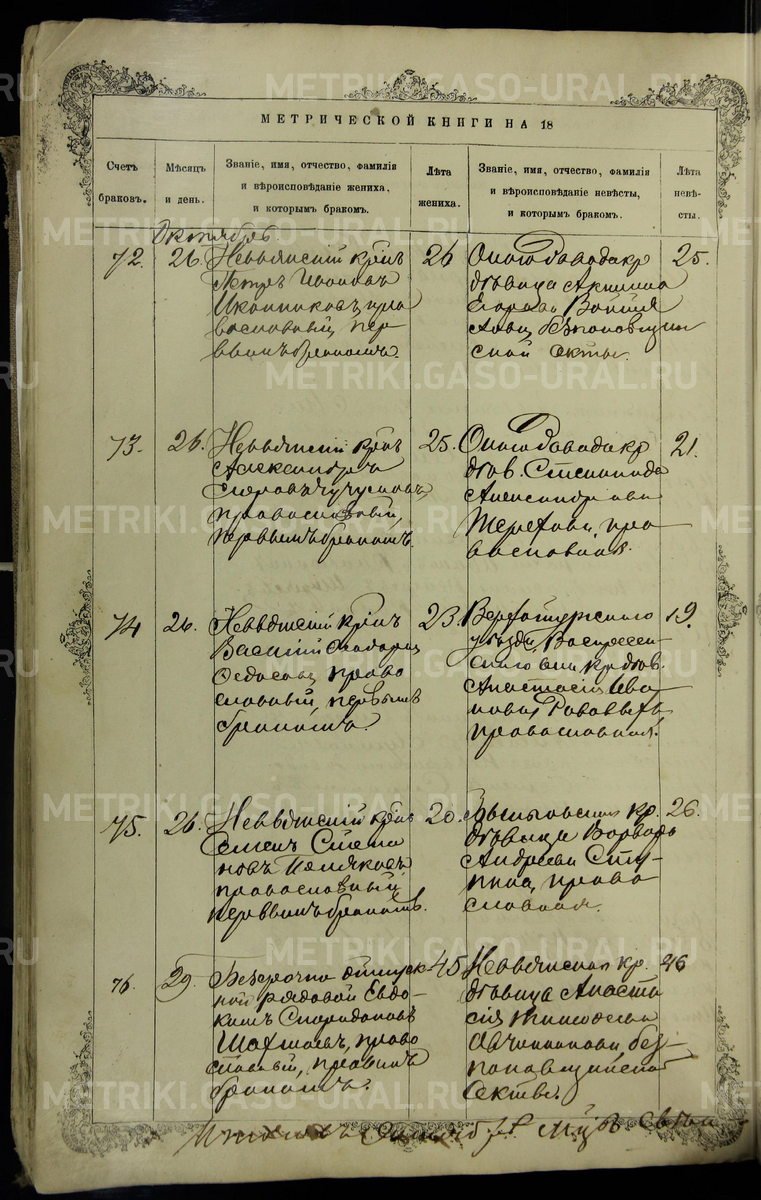 МЕТРИЧЕСКОЙ КНИГИ НА 18
Счетъ браковъ.
Мѣсяцъ и день.
Званіе, имя, отчество, фамилія
и вѣроисповѣданіе жениха,
и которымъ бракомъ.
Лѣта жениха.
Званіе, имя, отчество, фамилія
и вѣроисповѣданіе невѣсты,
и которымъ бракомъ.
Лѣта невѣ-
сты.
Октябрь
72.
26.
Невьянскій крнъ
Петръ Ивановъ
Иконниковъ, пра
вославный, пер
вымъ бракомъ.
26
Онаго завода кр
дѣвица Акилина
Егорова
безпоповщин
ской секты.
25.
73.
26.
Невьянскій крнъ
Александръ
православный,
первымъ бракомъ.
25.
Онаго завода кр
дѣв. Степанида
Александрова
Терехова, пра
вославная.
21.
74
26.
Невьянскій крнъ
Василій
право
славный, первымъ
бракомъ.
23.
Верхотурскаго
уѣзда, Воскресен
скаго села кр. дѣв.
Анастасія Ива
нова
православная.
19.
75.
26.
Невьянскій крнъ
Семенъ Степа
новъ Поляковъ,
православный,
первымъ бракомъ.
20.
кр.
дѣвица Варвара
Андреева
право
славная.
26.
76.
29.
Безсрочно отпуск
ной рядовой Евдо-
кимъ Спиридоновъ
право
славный, первымъ
бракомъ.
45
Невьянская кр.
дѣвица Анаста
сія Тимофеева
Овчинникова, без-
поповщинской
секты.
46
METRIKI.GASO-URAL.RU